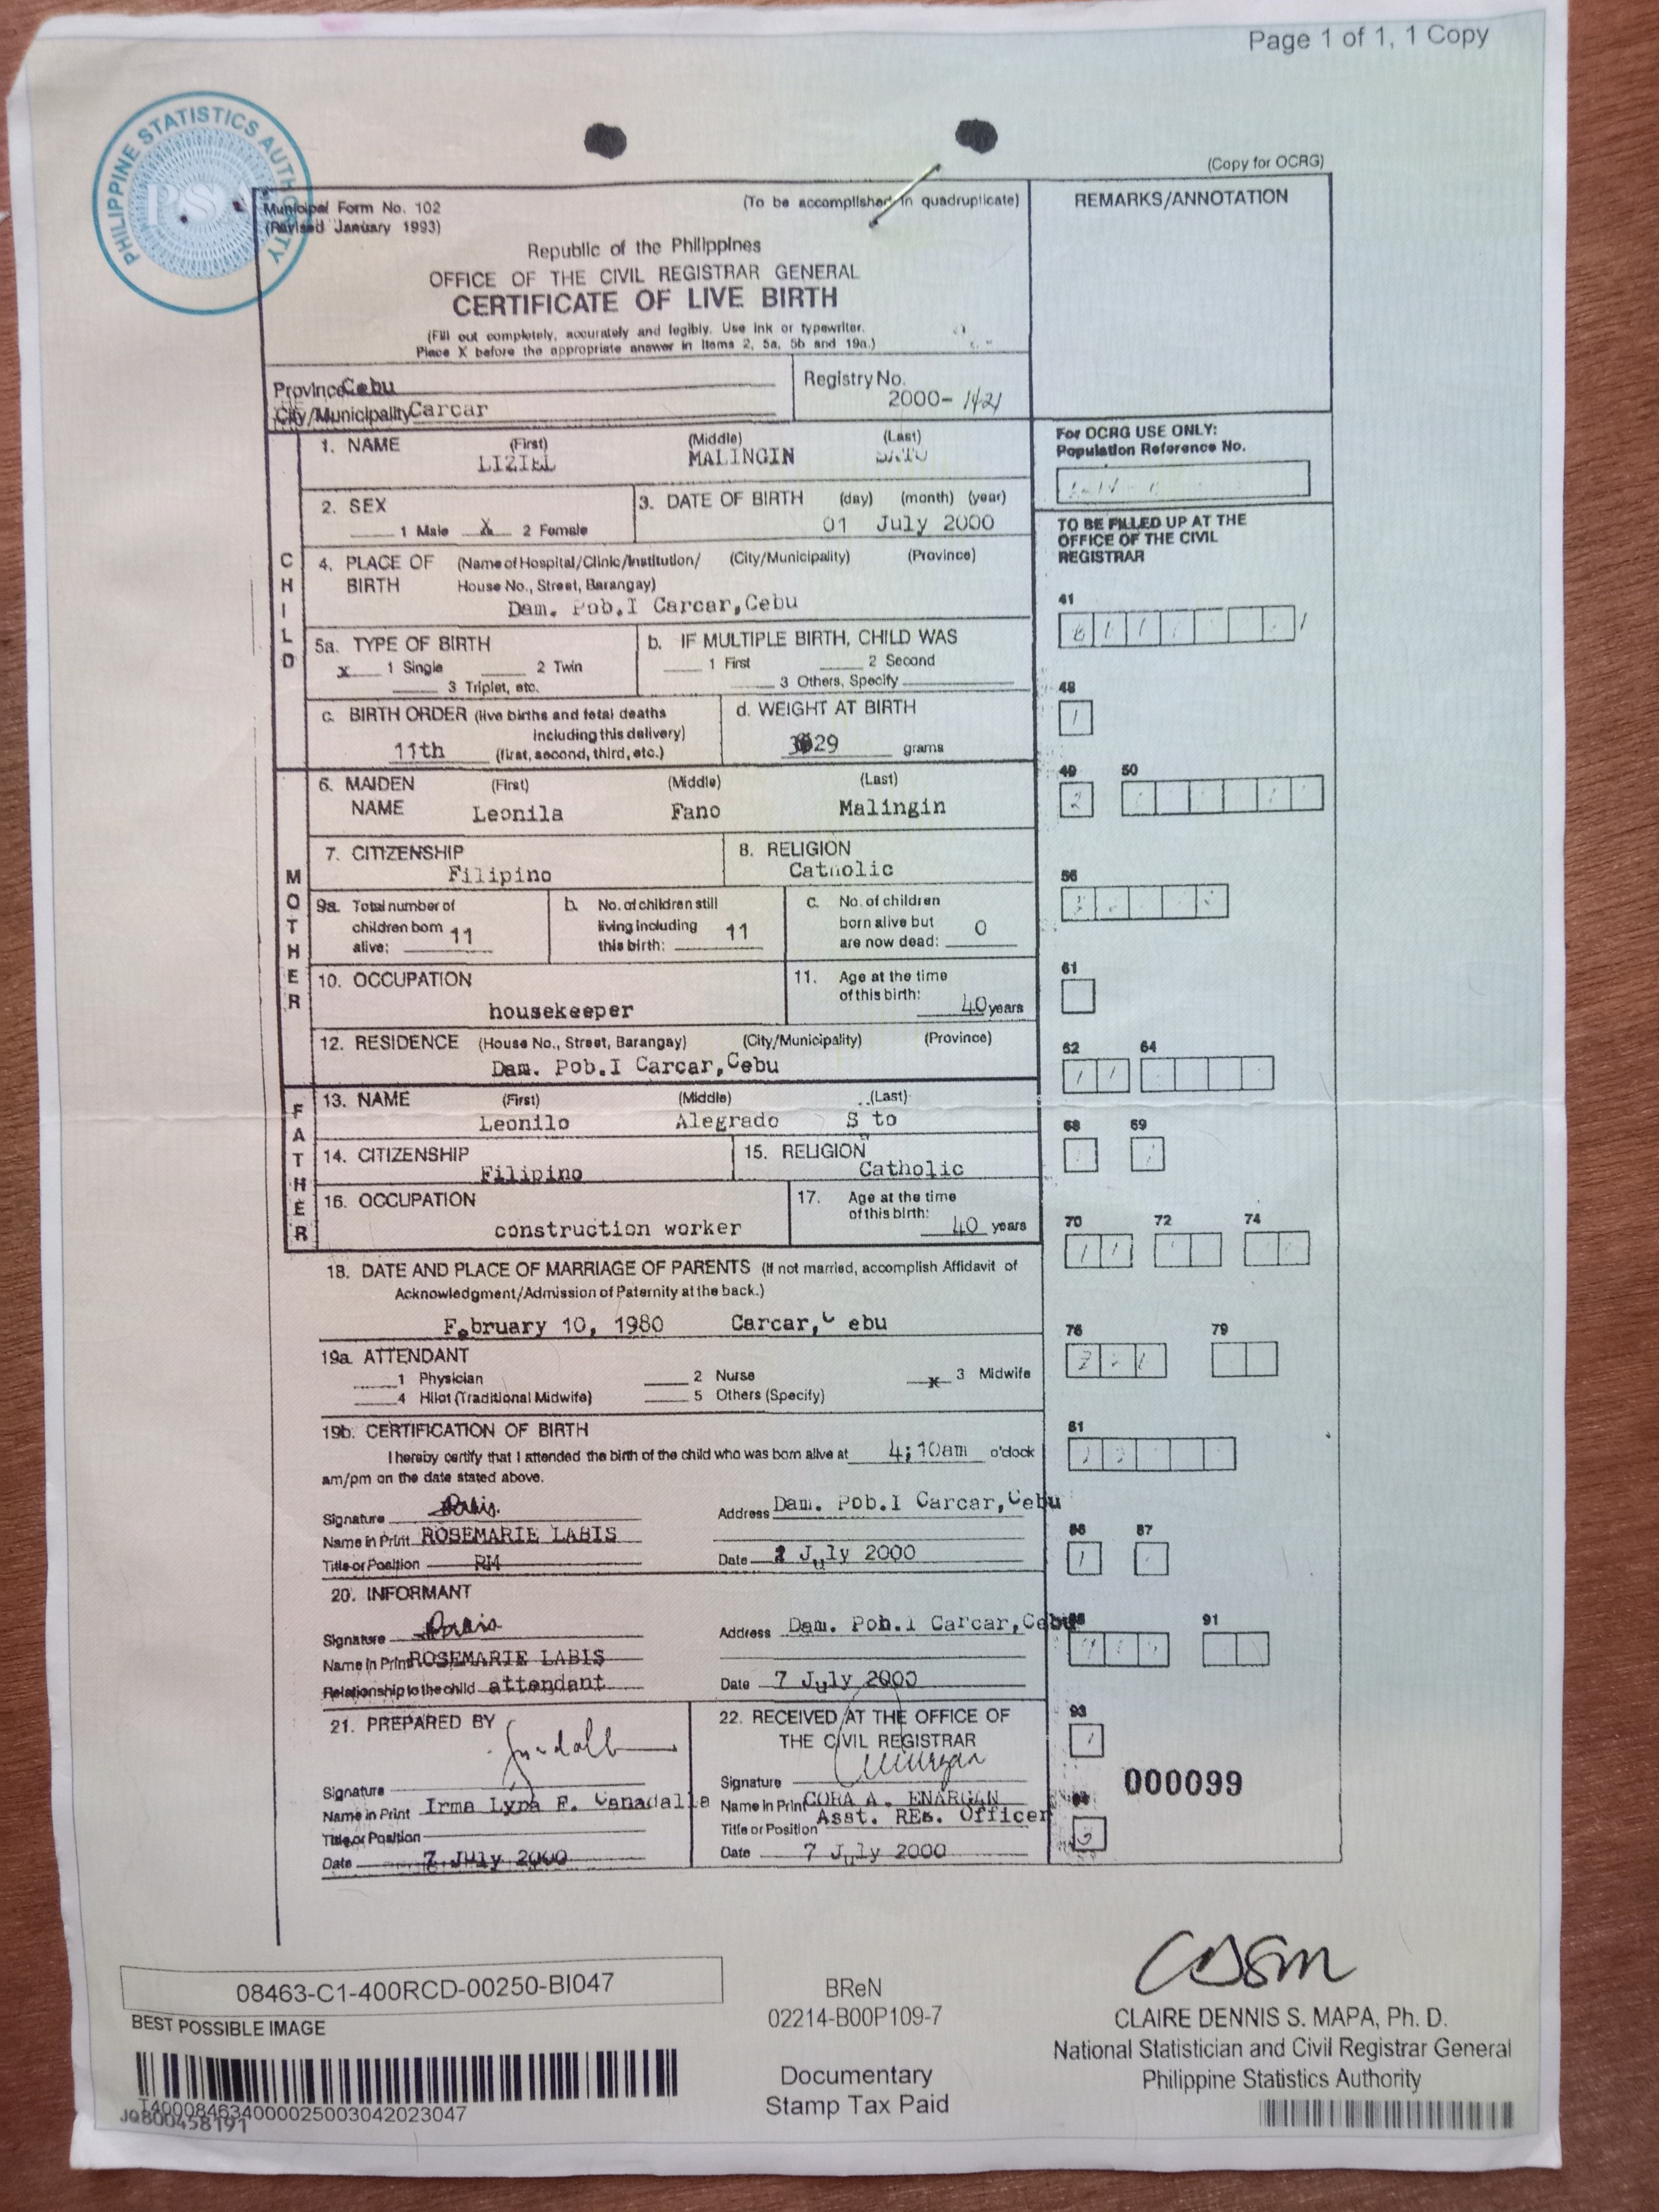 Page 1 of 1, 1 Copy
PHILIPPINE STATISTICS AUTHORITY
PSA
(Copy for OCRG)
Municipal Form No. 102
(To be accomplished in quadruplicate)
(Revised January 1993)
Republic of the Philippines
OFFICE OF THE CIVIL REGISTRAR GENERAL
CERTIFICATE OF LIVE BIRTH
(Fill out completely, accurately and legibly. Use ink or typewriter.
Place X before the appropriate answer in Items 2, 5a, 5b and 19a.)
REMARKS/ANNOTATION
Province Cebu
City/Municipality Carcar
Registry No.
2000- 1421
CHILD
1. NAME (First) (Middle) (Last)
LIZIEL MALINGIN
2. SEX
1 Male X 2 Female
3. DATE OF BIRTH (day) (month) (year)
01 July 2000
4. PLACE OF BIRTH (Name of Hospital/Clinic/Institution/ (City/Municipality) (Province)
House No., Street, Barangay)
Dam. Pob.I Carcar,Cebu
5a. TYPE OF BIRTH
x 1 Single 2 Twin
3 Triplet, etc.
b. IF MULTIPLE BIRTH, CHILD WAS
1 First 2 Second
3 Others, Specify
c. BIRTH ORDER (live births and fetal deaths
including this delivery)
11th (first, second, third, etc.)
d. WEIGHT AT BIRTH
grams
MOTHER
6. MAIDEN NAME (First) (Middle) (Last)
Leonila Fano Malingin
7. CITIZENSHIP
Filipino
8. RELIGION
Catholic
9a. Total number of
children born
alive: 11
b. No. of children still
living including
this birth: 11
c. No. of children
born alive but
are now dead: 0
10. OCCUPATION
housekeeper
11. Age at the time
of this birth:
40 years
12. RESIDENCE (House No., Street, Barangay) (City/Municipality) (Province)
Dam. Pob.I Carcar,Cebu
FATHER
13. NAME (First) (Middle) (Last)
Leonilo Alegrado S to
14. CITIZENSHIP
Filipino
15. RELIGION
Catholic
16. OCCUPATION
construction worker
17. Age at the time
of this birth:
40 years
18. DATE AND PLACE OF MARRIAGE OF PARENTS (If not married, accomplish Affidavit of
Acknowledgment/Admission of Paternity at the back.)
February 10, 1980 Carcar,C ebu
19a. ATTENDANT
1 Physician 2 Nurse x 3 Midwife
4 Hilot (Traditional Midwife) 5 Others (Specify)
19b. CERTIFICATION OF BIRTH
I hereby certify that I attended the birth of the child who was born alive at 4;10am o'clock
am/pm on the date stated above.
Signature
Address Dam. Pob.I Carcar,Cebu
Name in Print ROSEMARIE LABIS
Title or Position RM
Date July 2000
20. INFORMANT
Signature
Address Dam. Pob.I Carcar,Cebu
Name in Print ROSEMARIE LABIS
Relationship to the child attendant
Date 7 July 2000
21. PREPARED BY
Signature
Name in Print Irma Lyra F. Canadalla
Title or Position
Date 7 JUly 2000
22. RECEIVED AT THE OFFICE OF
THE CIVIL REGISTRAR
Signature
Name in Print CORA A. ENARGAN
Title or Position Asst. REg. Officer
Date 7 July 2000
For OCRG USE ONLY:
Population Reference No.
TO BE FILLED UP AT THE
OFFICE OF THE CIVIL
REGISTRAR
41
48
1
49 50
2
56
61
62 64
68 69
70 72 74
76 79
81
86 87
1
91
93
1
000099
08463-C1-400RCD-00250-BI047
BEST POSSIBLE IMAGE
T400084634000025003042023047
JQ800458191
BReN
02214-B00P109-7
Documentary
Stamp Tax Paid
CDSM
CLAIRE DENNIS S. MAPA, Ph. D.
National Statistician and Civil Registrar General
Philippine Statistics Authority